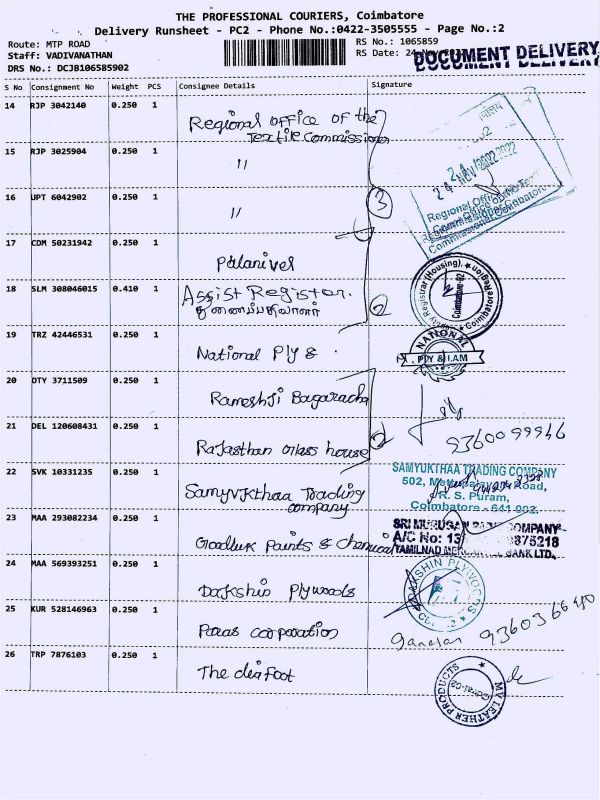 THE PROFESSIONAL COURIERS, Coimbatore
Delivery Runsheet - PC2 - Phone No.:0422-3505555 - Page No.:2
Route: MTP ROAD
RS No.: 1065859
Staff: VADIVANATHAN
RS Date: 24
DOCUMENT DELIVERY
DRS No.: DCJB106585902
S No Consignment No Weight PCS Consignee Details Signature
14 RJP 3042140 0.250 1 Regional office of the
Textile Commissioner
15 RJP 3025904 0.250 1 11
16 UPT 6042902 0.250 1 11
24 NOV 2022
Regional Office
Coimbatore
3
17 CDM 50231942 0.250 1 Palanivel
18 SLM 308046015 0.410 1 Assist Register.
துணைப்பதிவாளர்
2
Registrar (Housing),
Coimbatore Region
Coimbatore-
19 TRZ 42446531 0.250 1 National Ply &
NATIONAL
PLY & LAM
20 OTY 3711509 0.250 1 Rameshji
21 DEL 120608431 0.250 1 Rajasthan Glass house
22 SVK 10331235 0.250 1 Samyukthaa Trading
company
SAMYUKTHAA TRADING COMPANY
502, Mettupalayam Road,
R. S. Puram,
Coimbatore - 641 002.
23 MAA 293082234 0.250 1 Goodluk Paints & chemical
SRI MURUGAN COMPANY
A/C No: 13 875218
TAMILNAD MERCANTILE BANK LTD.,
24 MAA 569393251 0.250 1 Dakshin Plywoods
PLYWOODS
25 KUR 528146963 0.250 1 Paras corporation
9360366
26 TRP 7876103 0.250 1 The deafoot
MV LEATHER PRODUCTS